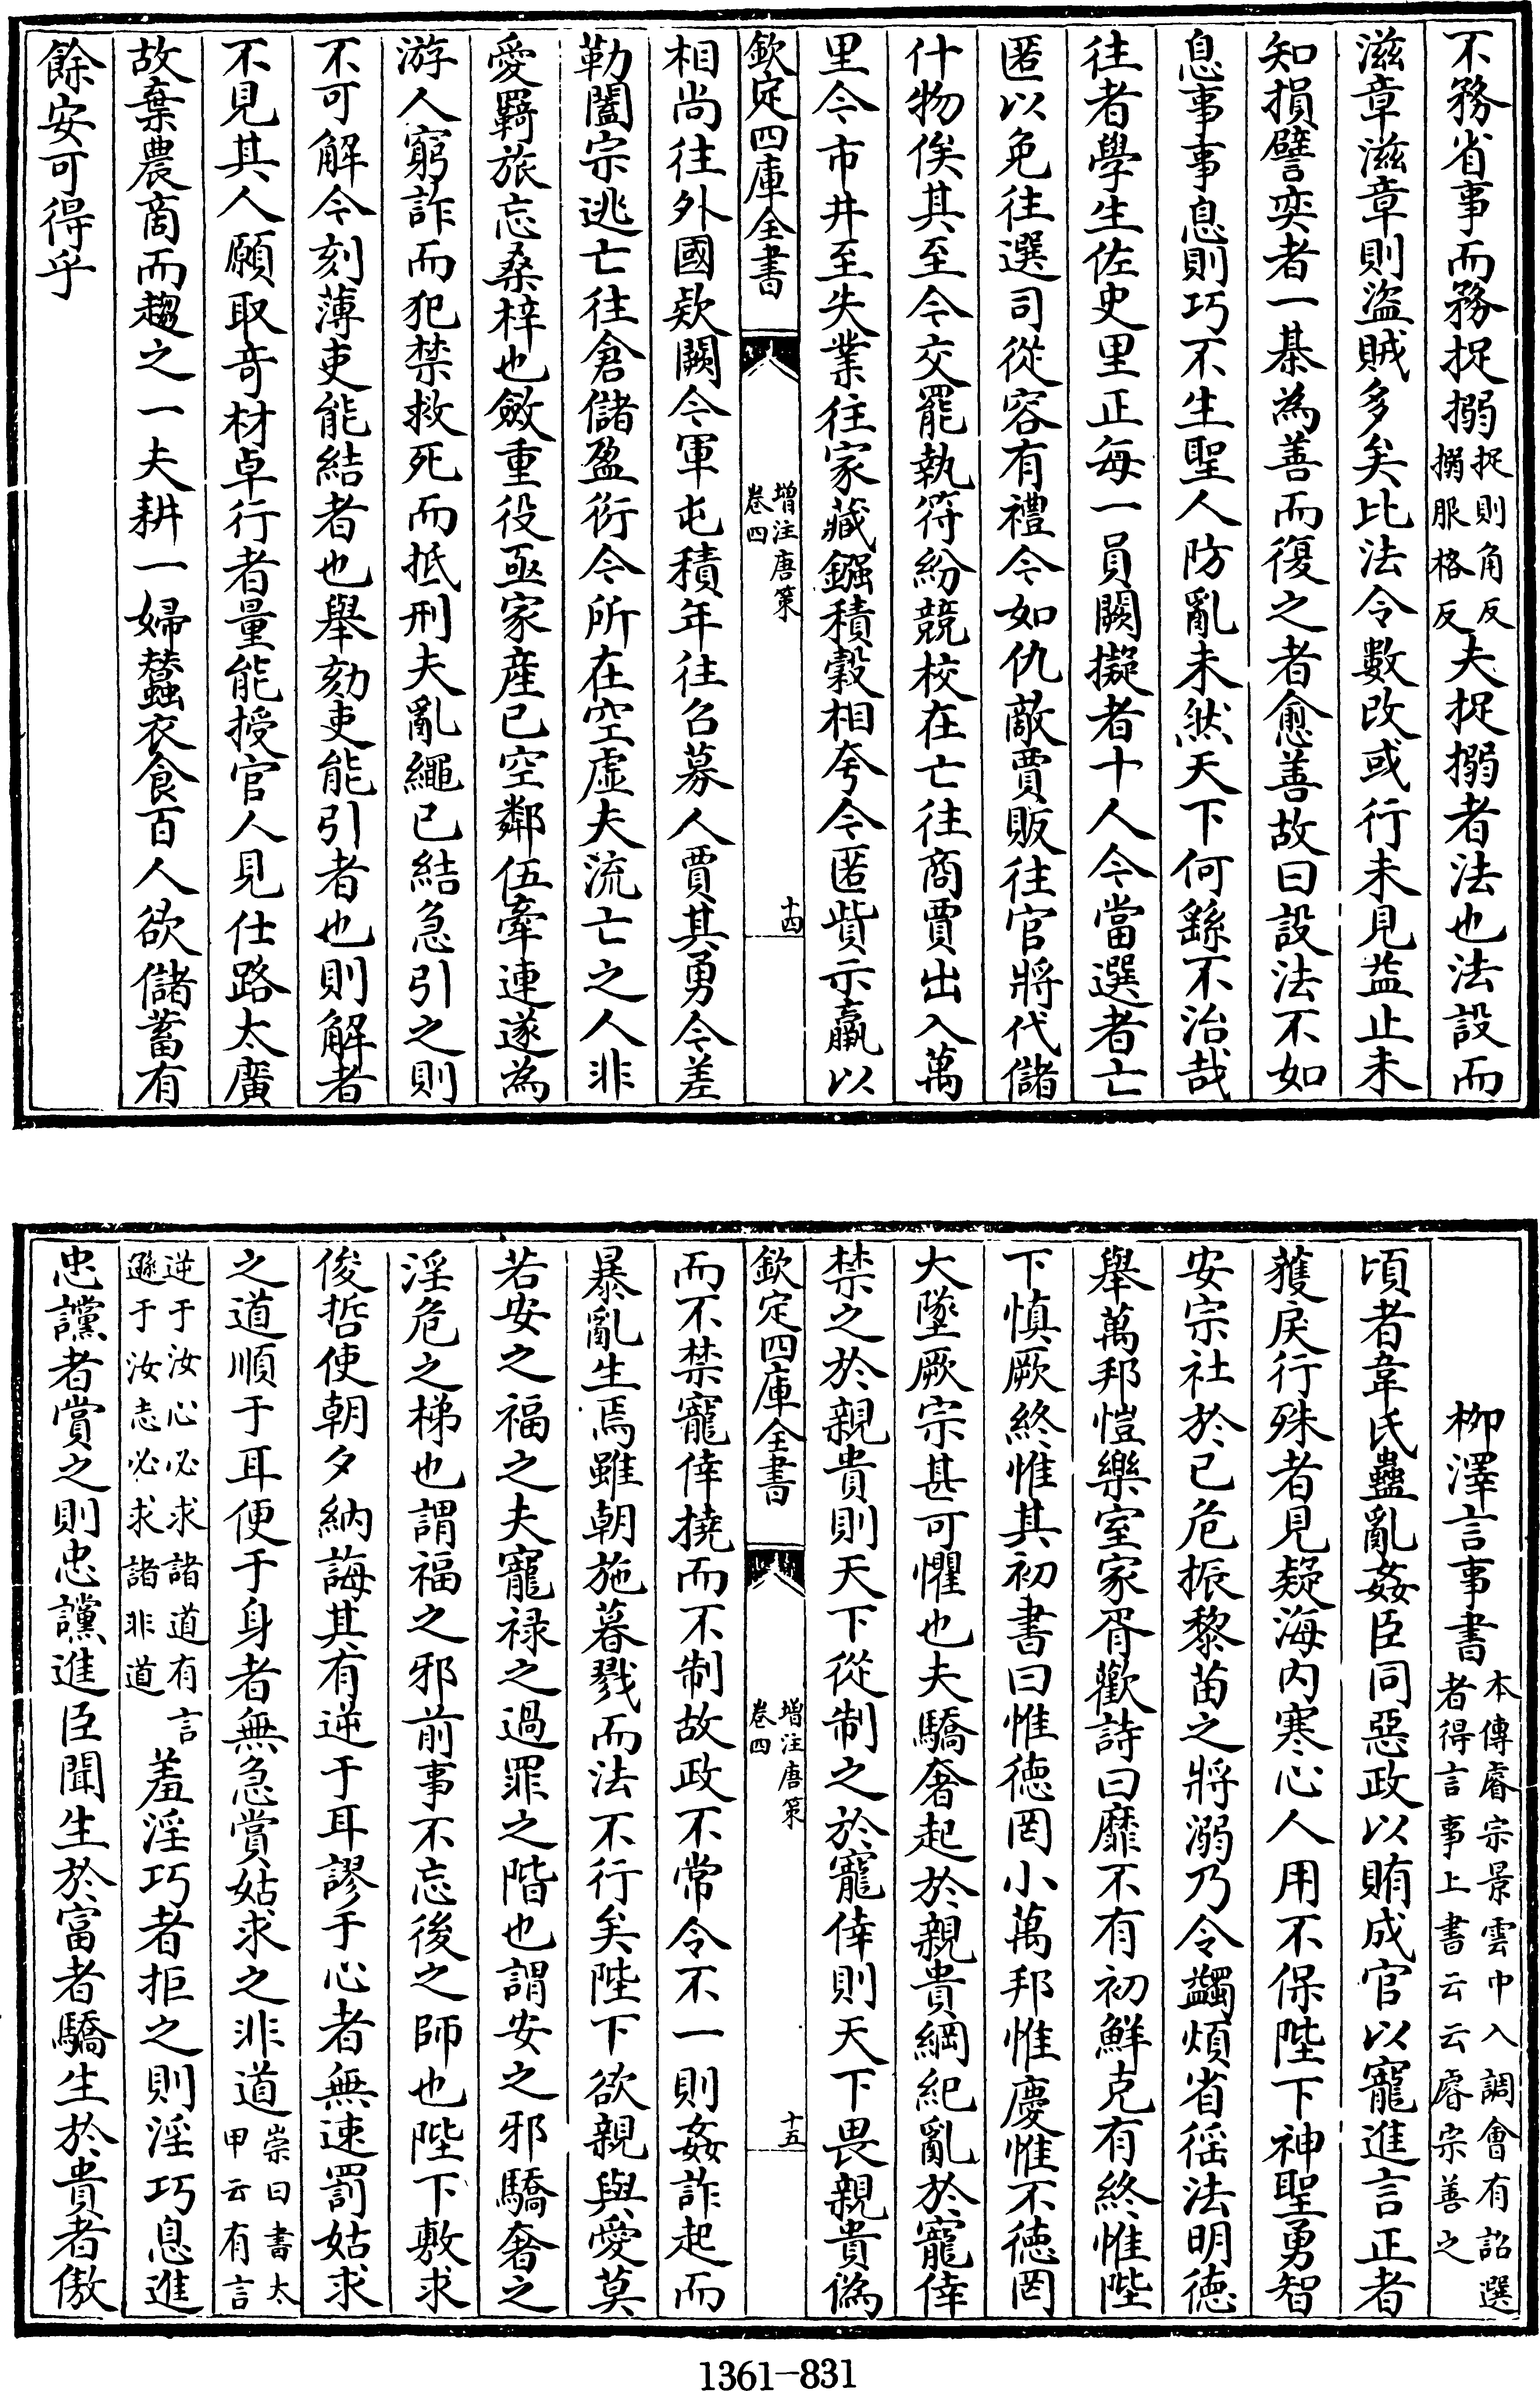 不務省事而務捉搦捉則角反搦服格反夫捉搦者法也法設而
滋章滋章則盜賊多矣比法令數改或行未見益止未
知損譬奕者一棊為善而復之者愈善故曰設法不如
息事事息則巧不生聖人防亂未然天下何繇不治哉
往者學生佐史里正每一員闕擬者十人今當選者亡
匿以免往選司從容有禮今如仇敵賈販往官將代儲
什物俟其至今交罷執符紛競校在亡往商賈出入萬
里今市井至失業往家藏鏹積穀相夸今匿貲示羸以
欽定四庫全書
增注唐策
卷四
十四
相尚往外國欵闕今軍屯積年往召募人賈其勇今差
勒闔宗逃亡往倉儲盈衍今所在空虛夫流亡之人非
愛羇旅忘桑梓也斂重役亟家産已空鄰伍牽連遂為
游人窮詐而犯禁救死而抵刑夫亂繩已結急引之則
不可解今刻薄吏能結者也舉劾吏能引者也則解者
不見其人願取奇材卓行者量能授官人見仕路太廣
故棄農商而趨之一夫耕一婦蠶衣食百人欲儲蓄有
餘安可得乎
柳澤言事書本傳睿宗景雲中入調會有詔選者得言事上書云云睿宗善之
頃者韋氏蠱亂姦臣同惡政以賄成官以寵進言正者
獲戾行殊者見疑海内寒心人用不保陛下神聖勇智
安宗社於已危振黎苗之將溺乃今蠲煩省徭法明徳
舉萬邦愷樂室家胥歡詩曰靡不有初鮮克有終惟陛
下慎厥終惟其初書曰惟徳罔小萬邦惟慶惟不徳罔
大墜厥宗甚可懼也夫驕奢起於親貴綱紀亂於寵倖
禁之於親貴則天下從制之於寵倖則天下畏親貴偽
欽定四庫全書
增注唐策
卷四
十五
而不禁寵倖撓而不制故政不常令不一則姦詐起而
暴亂生焉雖朝施暮戮而法不行矣陛下欲親與愛莫
若安之福之夫寵祿之過罪之階也謂安之邪驕奢之
淫危之梯也謂福之邪前事不忘後之師也陛下敷求
俊哲使朝夕納誨其有逆于耳謬于心者無速罰姑求
之道順于耳便于身者無急賞姑求之非道崇曰書太甲云有言
逆于汝心必求諸道有言遜于汝志必求諸非道羞淫巧者拒之則淫巧息進
忠讜者賞之則忠讜進臣聞生於富者驕生於貴者傲
1361-831